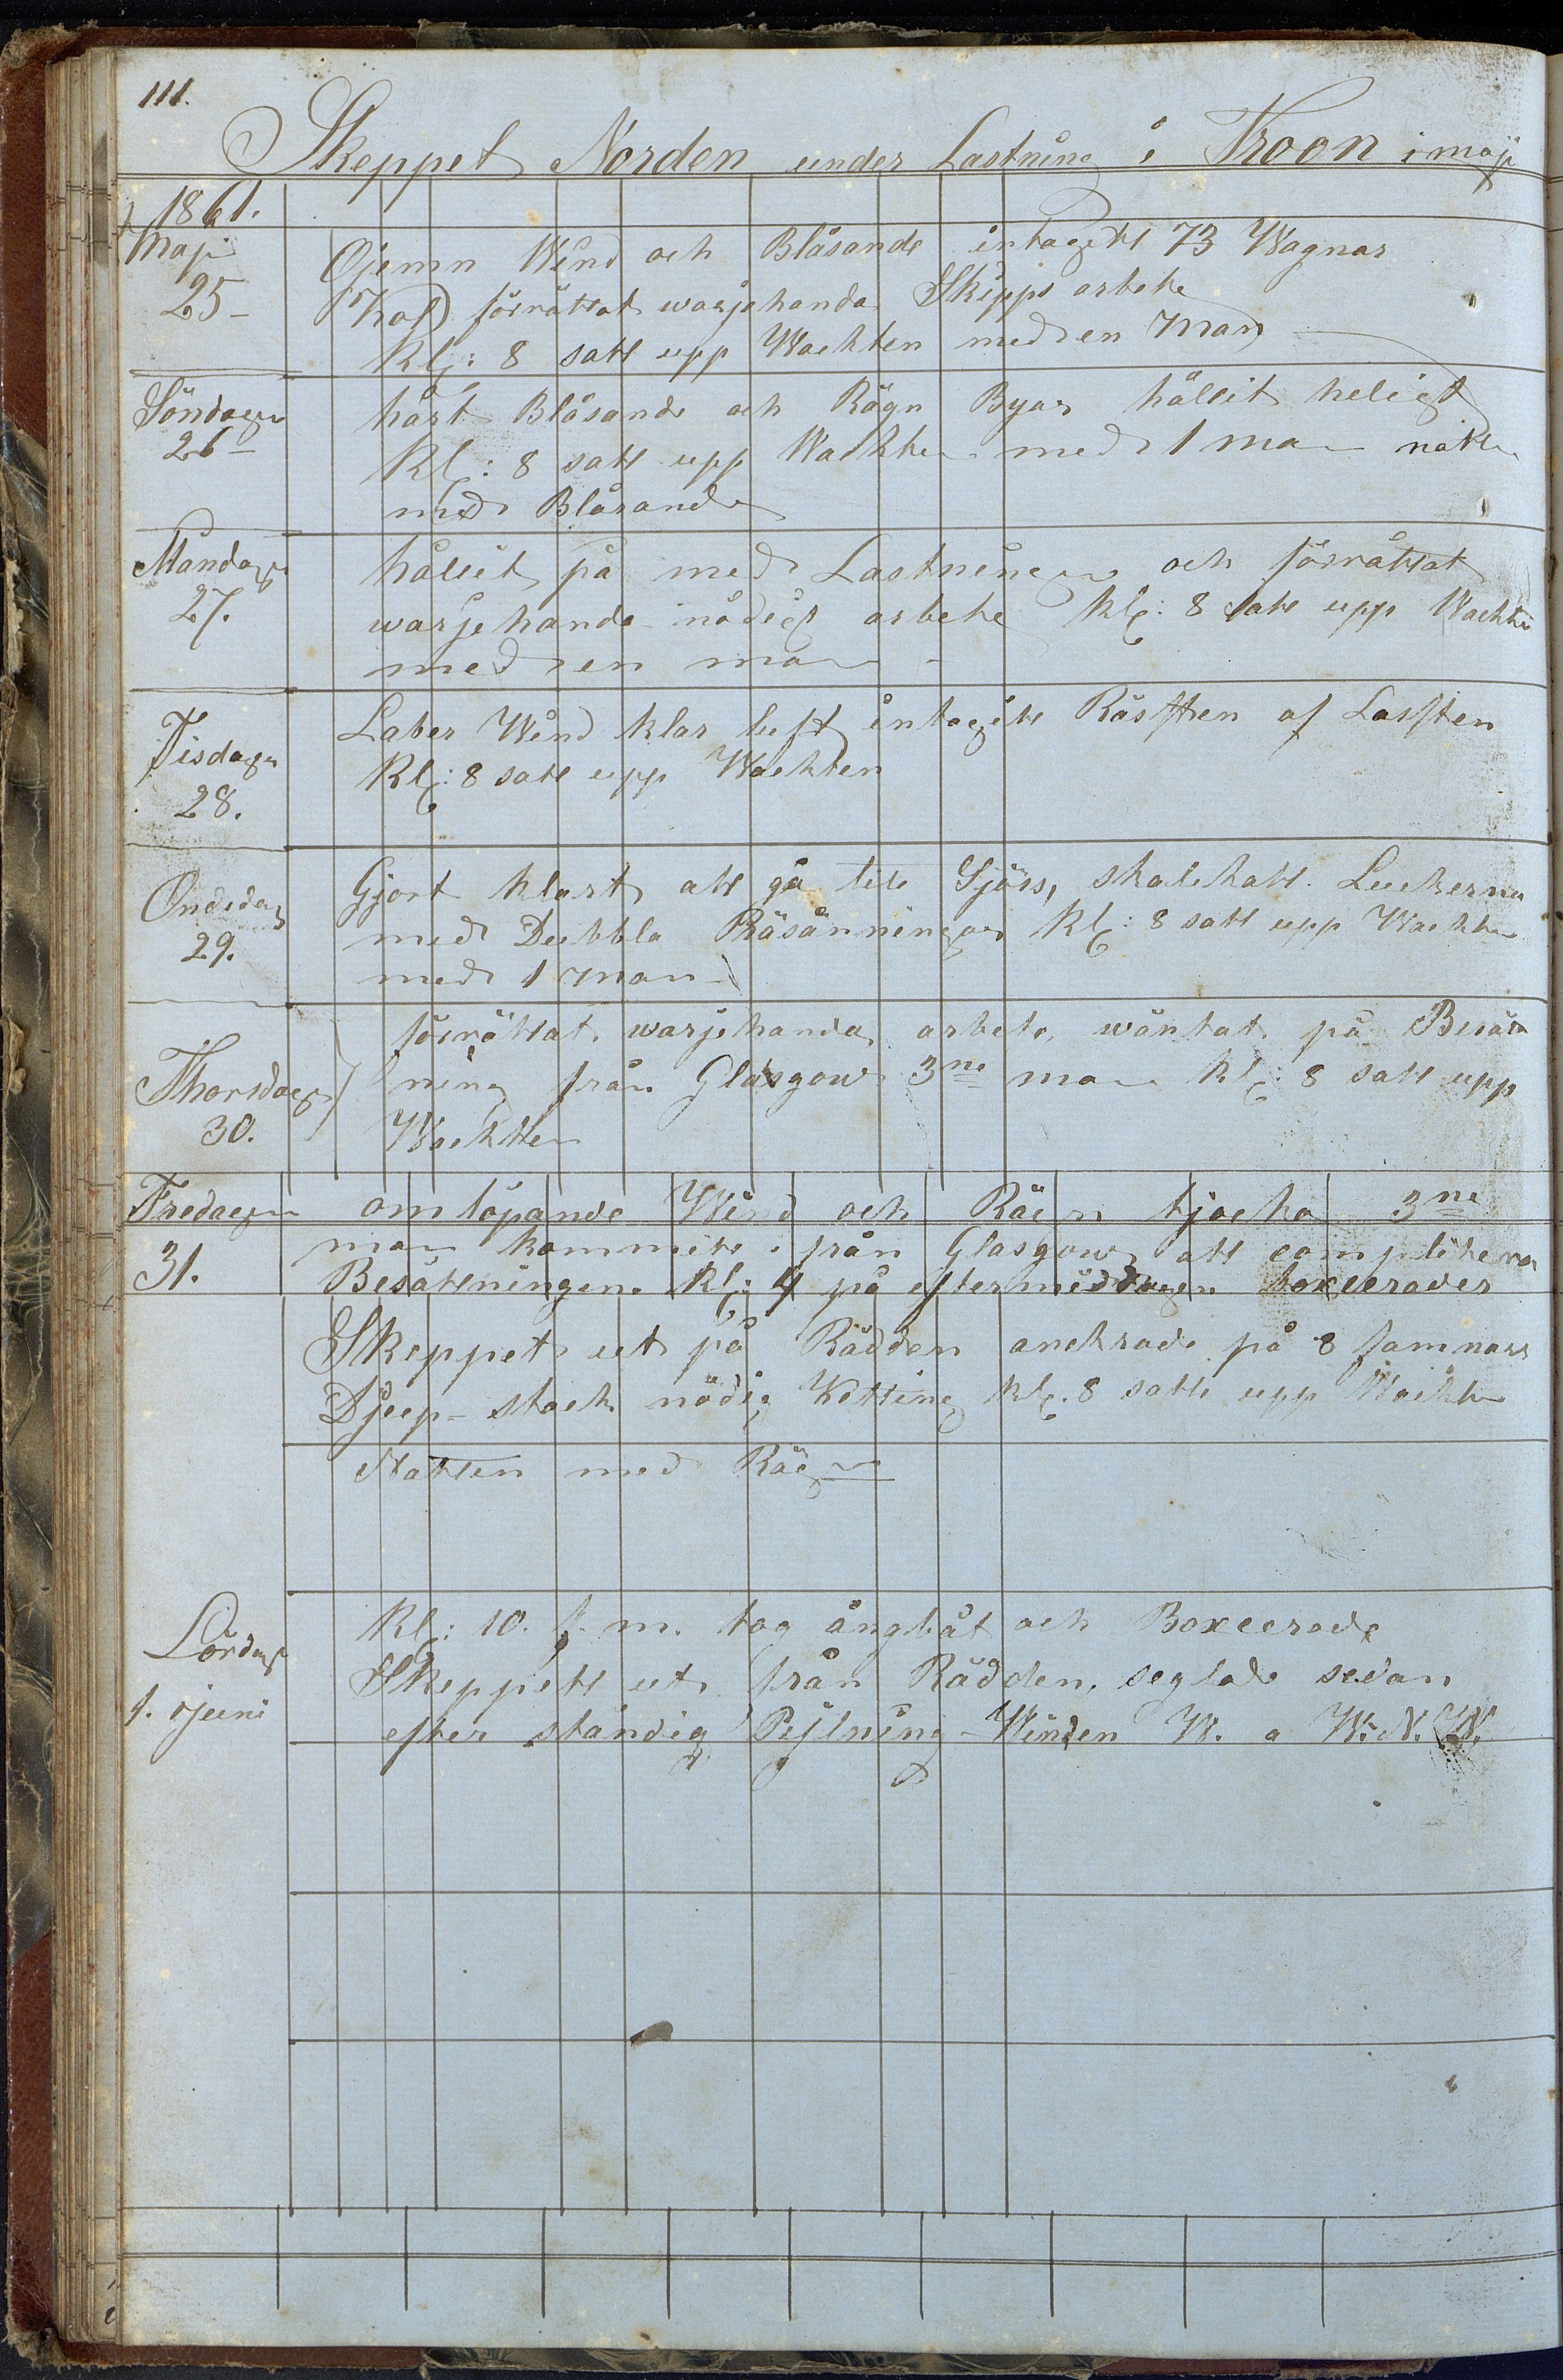 111.
Skeppet Norden under Lastning i Troon i maji
1861.
Maji
25-
Ojemn Wind och Blåsande intagitt 73 Wagnar
Kol förrättat warjehanda Skepps arbete
Kl: 8 satt upp Wackten med en Man
Söndagen
26-
hårt Blåsande och Rägn Byar hållit heligt
Kl: 8 satt upp Wackten med 1 man natten
med Blåsande
Måndagen
27.
hållit på med Lastningen och förrättat
warjehanda nödigt arbete Kl: 8 satt upp Wackten
med en man -
Tisdagen
28.
Laber Wind klar luft intagitt Räsften af Lasften
Kl: 8 satt upp Wackten
Onsdag
29.
Gjort klart att gå till Sjöss, skalckatt Luckerna
med Dubbla Präsänningar Kl: 8 satt upp Wackten
med 1 man
Thorsdag
30.
förrättat warjehanda arbete, wäntat på Besätt
ning från Glasgow 3ne man Kl: 8 satt upp
Wackten
Fredagen
31.
omlöpande Wind och Rägn tjocka 3ne
man kommitt ifrån Glasgow att complitera
Besättningen. Kl: 4 på eftermiddagen boxerades
Skeppet ut på Rädden anckrade på 8 famnars
Djup - stack nödig Ketting Kl. 8 satt upp Wackten
Natten med Rägn
Lördag
1. Juni
Kl: 10. f. m. tog ångbåt och Boxerade
Skeppett ut från Rädden, seglade sedan
efter ständig Pejlning - Winden W. a W. N. W.